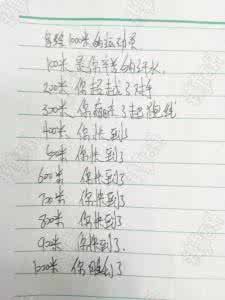 写给1000米的运动员
100米 是你辛苦的汗水
200米 你超越了对手
300米 你
400米 你快到了
500米 你快到了
600米 你快到了
700米 你快到了
800米 你快到了
900米 你快到了.
1000米 你到了